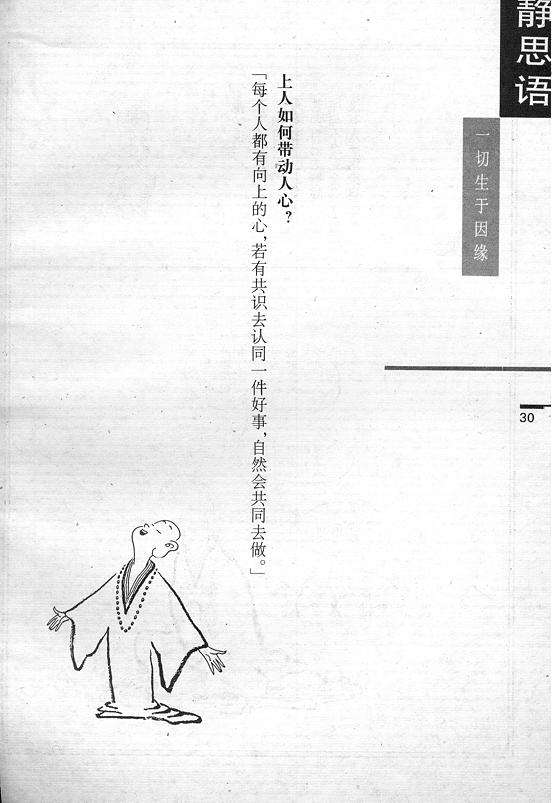 静思语
一切生于因缘
30
上人如何带动人心？
「每个人都有向上的心，若有共识去认同一件好事，自然会共同去做。」